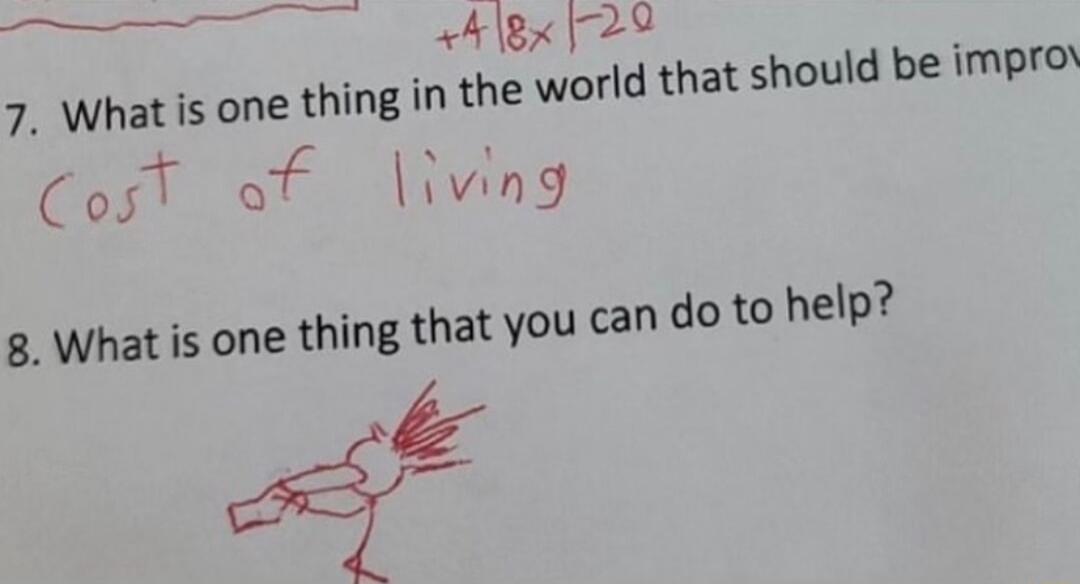 +4 8x -20
7. What is one thing in the world that should be improv
Cost of living
8. What is one thing that you can do to help?